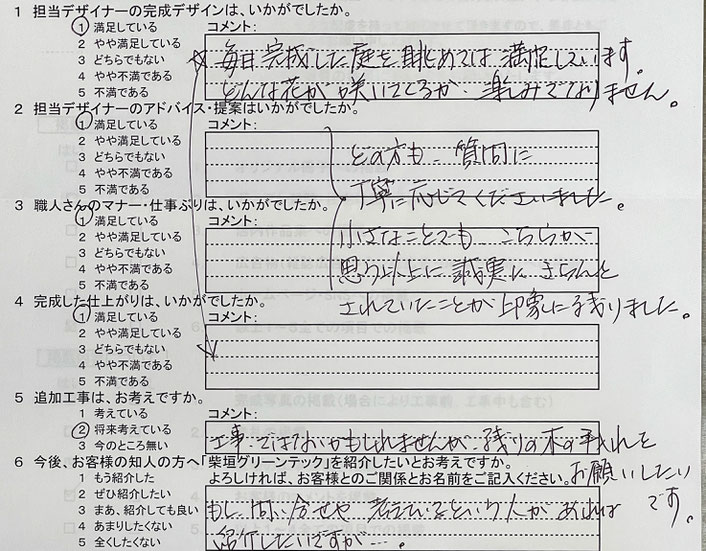 1 担当デザイナーの完成デザインは、いかがでしたか。
1 満足している コメント:
2 やや満足している
3 どちらでもない 毎日完成した庭を眺めては満足しています。
4 やや不満である
5 不満である どんな花が咲いてくるか、楽しみでなりません。
2 担当デザイナーのアドバイス・提案はいかがでしたか。
1 満足している コメント:
2 やや満足している
3 どちらでもない どの方も、質問に
4 やや不満である
5 不満である 丁寧に応じてくださいました。
3 職人さんのマナー・仕事ぶりは、いかがでしたか。
1 満足している コメント:
2 やや満足している 小さなことでも こちらが
3 どちらでもない
4 やや不満である 思う以上に誠実に、きちんと
5 不満である
4 完成した仕上がりは、いかがでしたか。 されていたことが印象に残りました。
1 満足している コメント:
2 やや満足している
3 どちらでもない
4 やや不満である
5 不満である
5 追加工事は、お考えですか。
1 考えている コメント:
2 将来考えている 工事ではないかもしれませんが、残りの木の手入れを
3 今のところ無い
お願いしたいです。
6 今後、お客様の知人の方へ「柴垣グリーンテック」を紹介したいとお考えですか。
1 もう紹介した よろしければ、お客様とのご関係とお名前をご記入ください。
2 ぜひ紹介したい
3 まあ、紹介しても良い もし、問い合せや 考えているという人があれば
4 あまりしたくない
5 全くしたくない 紹介したいですが…。